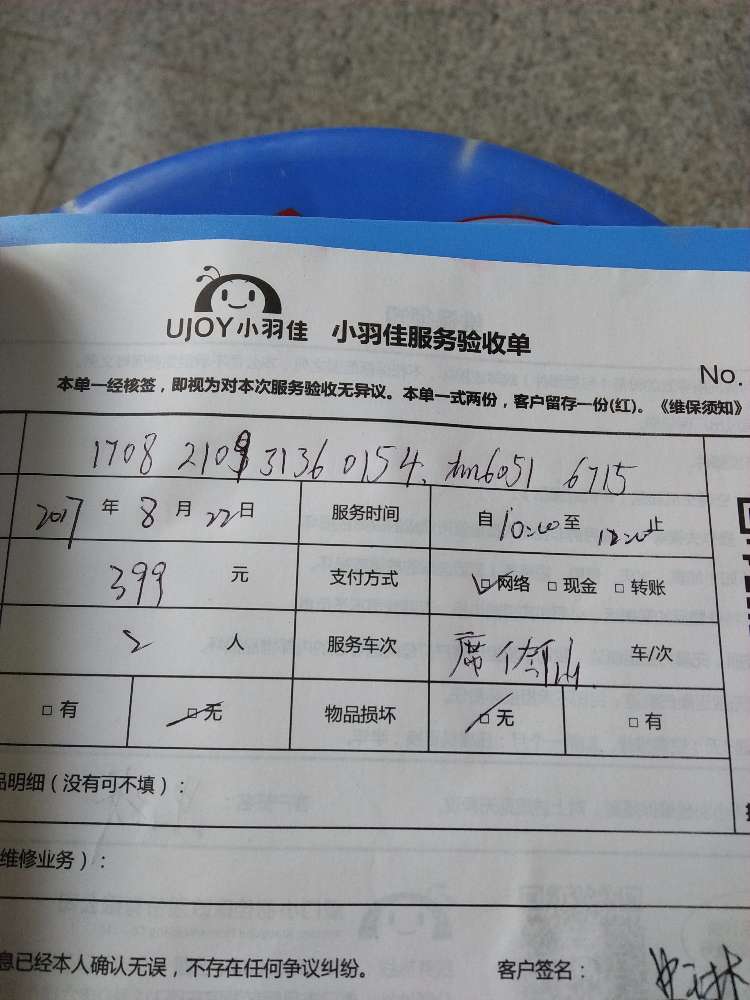 UJOY小羽佳 小羽佳服务验收单
No.
本单一经核签，即视为对本次服务验收无异议。本单一式两份，客户留存一份(红)。《维保须知》
1708 2109 3136 0154. 6051 6715
2017 年 8 月 22 日 服务时间 自 10:00 至 12:00 止
399 元 支付方式 □网络 □现金 □转账
2 人 服务车次 车/次
□有 □无 物品损坏 □无 □有
品明细（没有可不填）：
维修业务）：
息已经本人确认无误，不存在任何争议纠纷。 客户签名：